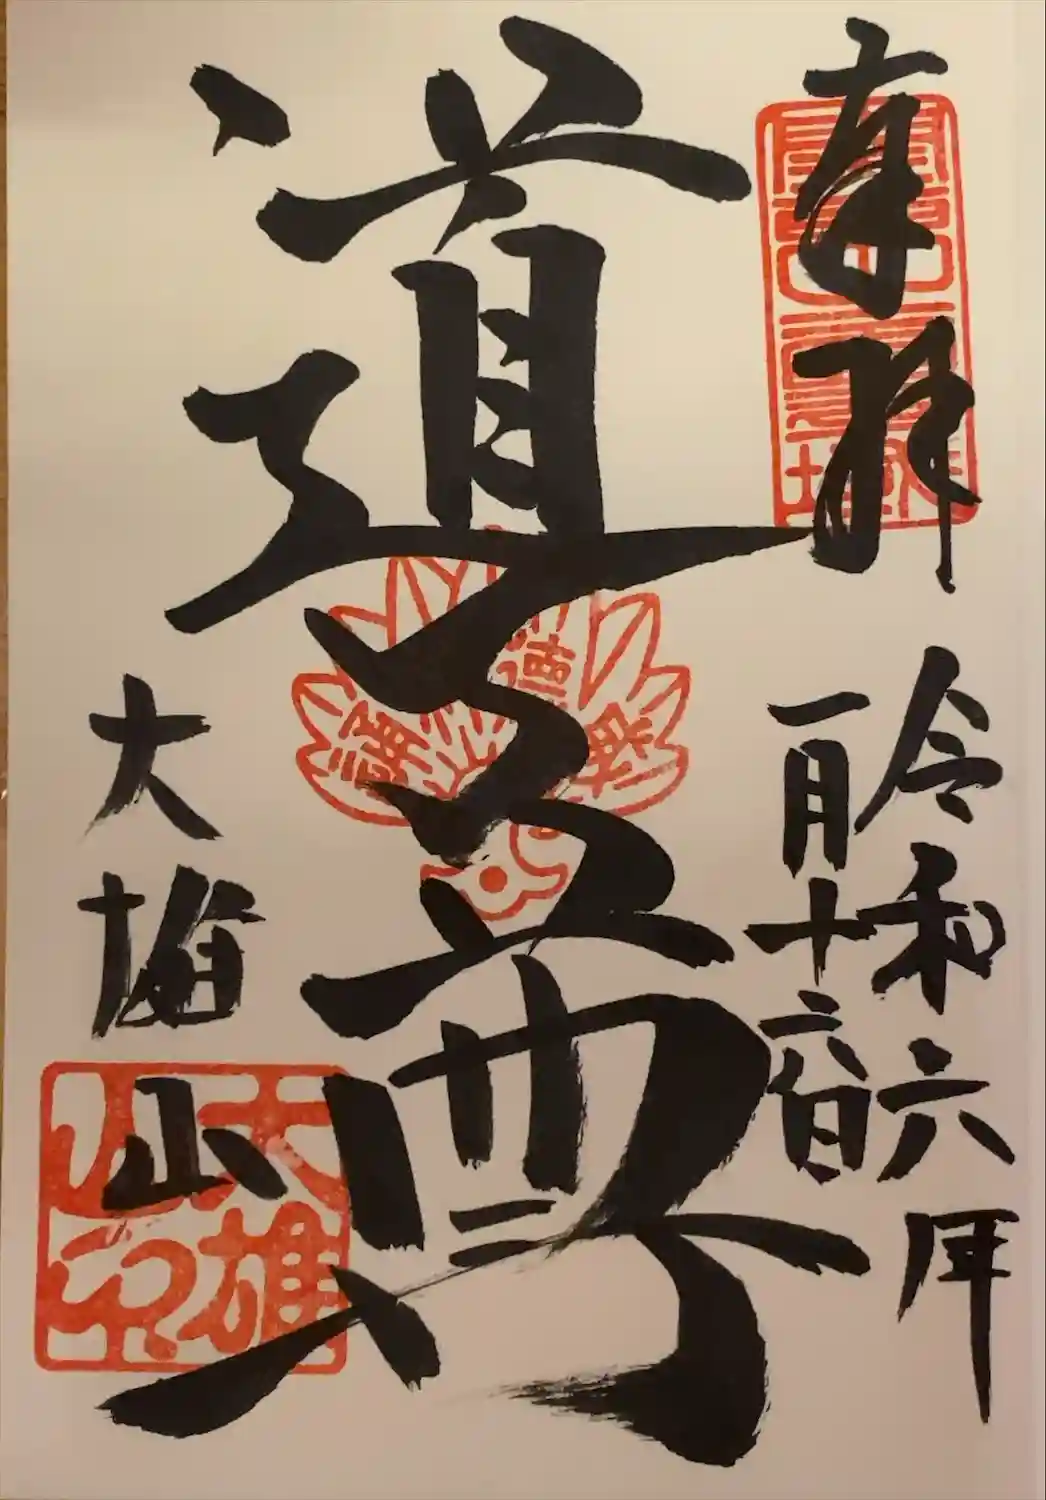 奉拝
令和六年
一月十六日
道了尊
大雄山
大雄山印